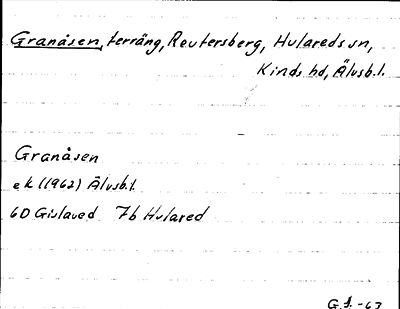 Granåsen, terräng, Reutersberg, Hulareds sn,
Kinds hd, Älvsb.l.
Granåsen
ek (1962) Älvsb.l.
6D Gislaved 7b Hulared
G.J. -63